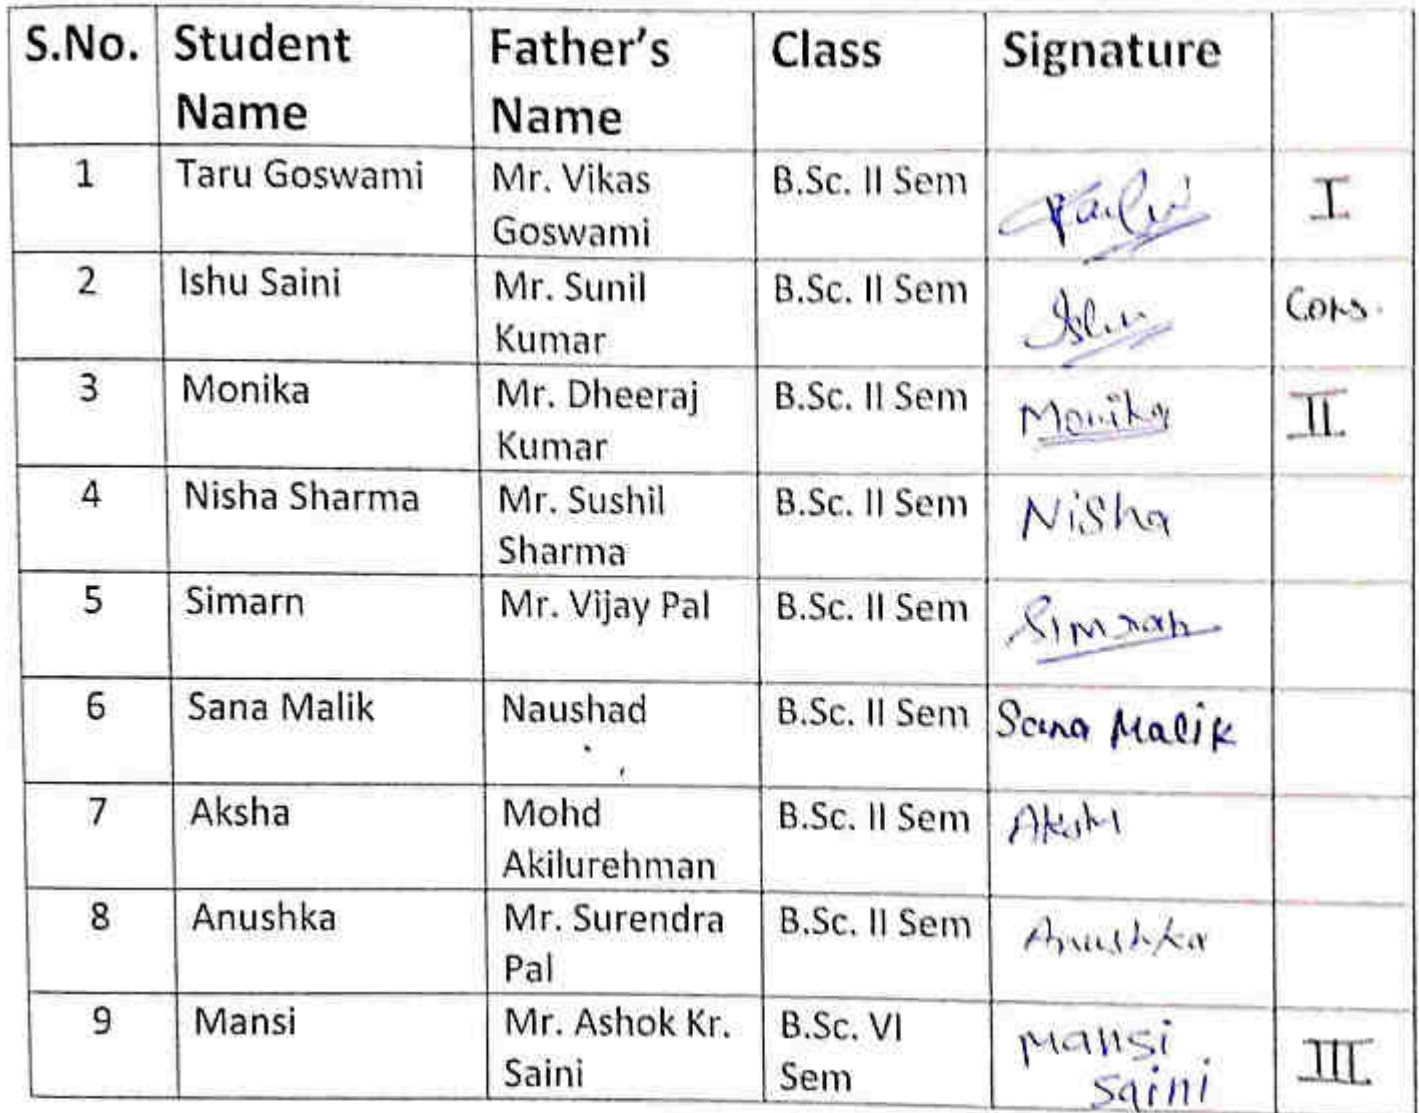 S.No. Student Name Father's Name Class Signature
1 Taru Goswami Mr. Vikas Goswami B.Sc. II Sem I
2 Ishu Saini Mr. Sunil Kumar B.Sc. II Sem Ishu Cons.
3 Monika Mr. Dheeraj Kumar B.Sc. II Sem Monika II
4 Nisha Sharma Mr. Sushil Sharma B.Sc. II Sem Nisha
5 Simarn Mr. Vijay Pal B.Sc. II Sem Simran
6 Sana Malik Naushad B.Sc. II Sem Sana Malik
7 Aksha Mohd Akilurehman B.Sc. II Sem
8 Anushka Mr. Surendra Pal B.Sc. II Sem Anushka
9 Mansi Mr. Ashok Kr. Saini B.Sc. VI Sem Mansi Saini III